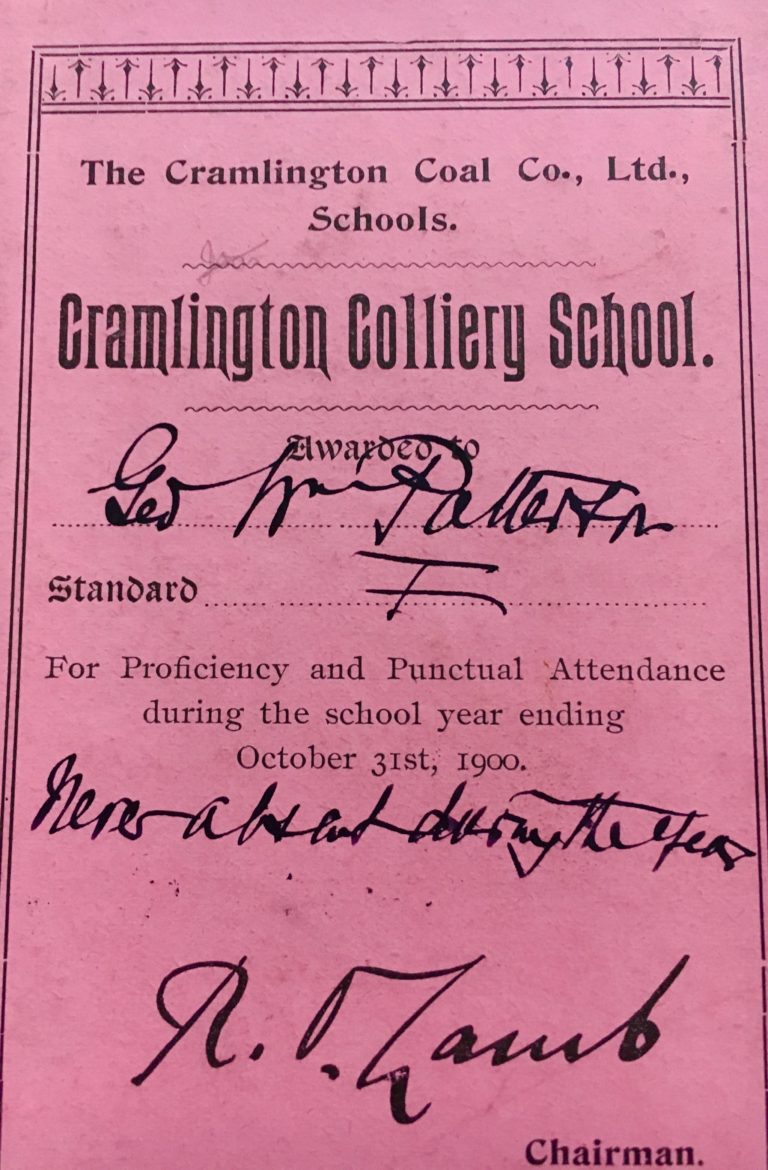 The Cramlington Coal Co., Ltd.,
Schools.
Cramlington Colliery School.
Awarded to
Geo Wm Patterson
Standard I
For Proficiency and Punctual Attendance
during the school year ending
October 31st, 1900.
Never absent during the year
R. O. Lamb
Chairman.